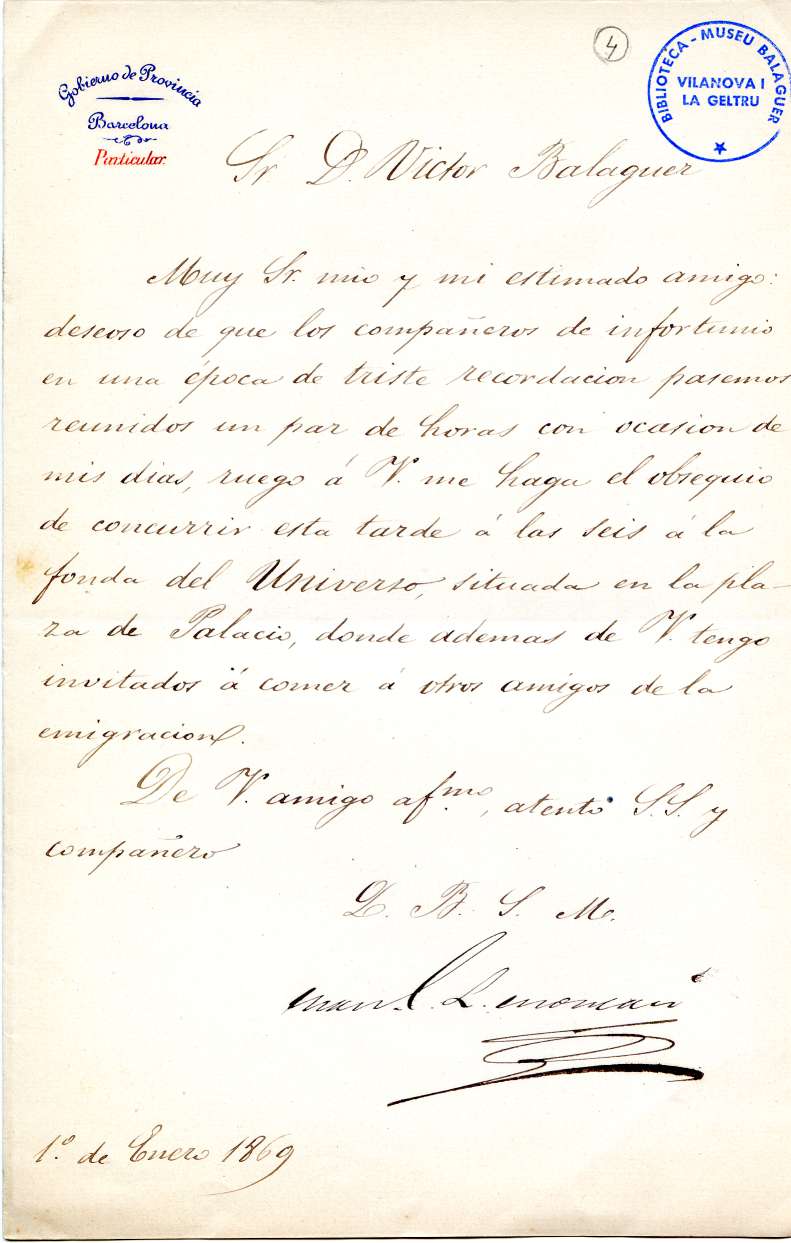 4
BIBLIOTECA - MUSEU BALAGUER
VILANOVA I
LA GELTRU
Gobierno de Provincia
Barcelona
Particular.
Sr. D. Victor Balaguer
Muy Sr. mio y mi estimado amigo:
deseoso de que los compañeros de infortunio
en una época de triste recordacion pasemos
reunidos un par de horas con ocasion de
mis dias, ruego á V. me haga el obsequio
de concurrir esta tarde á las seis á la
fonda del Universo, situada en la pla-
za de Palacio, donde ademas de V. tengo
invitados á comer á otros amigos de la
emigracion.
De V. amigo afmo, atento S.S. y
compañero
L. B. S. M.
1º de Enero 1869